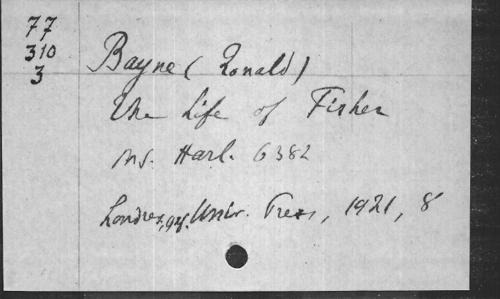 77
310
3
Bayne (Ronald)
The Life of Fisher
Ms. Harl. 6382
Londres, Univ. Press, 1921, 8